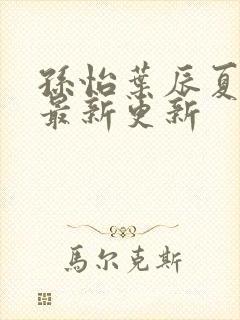 孫怡葉辰夏
最新更新
馬尔克斯